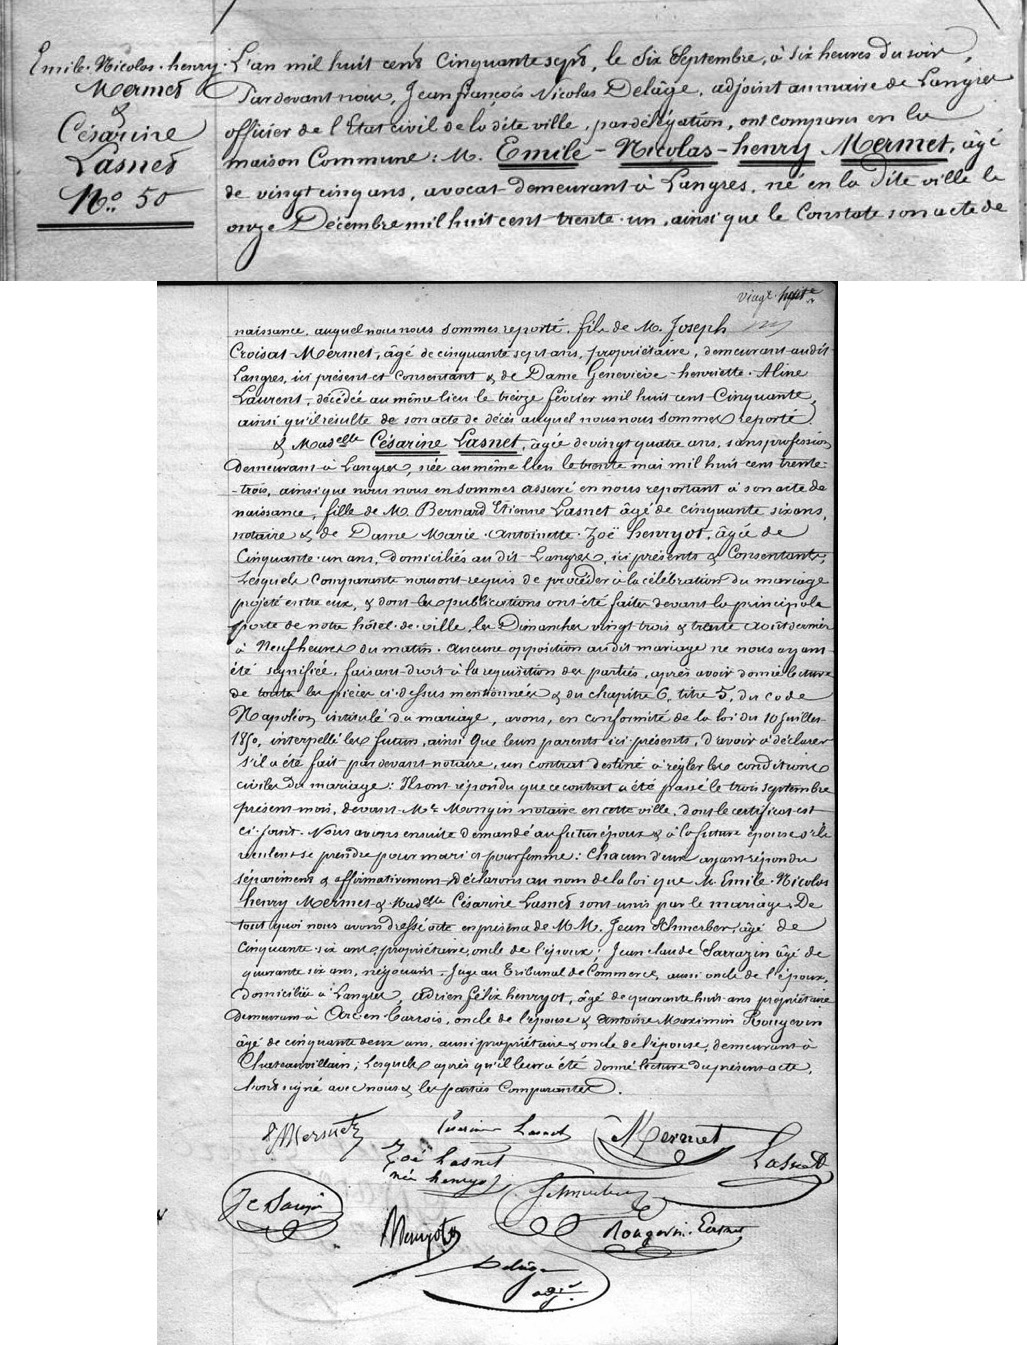 Emile-Nicolas-henry
Mermet
&
Césarine
Lasnet
No. 50
L'an mil huit cent Cinquante sept, le Six Septembre, à Six heures du soir,
Pardevant nous, Jean françois Nicolas Delâge, adjoint au maire de Langres
officier de l'Etat civil de la dite ville, par délégation, ont comparu en la
maison Commune: M. Emile-Nicolas-henry Mermet, âgé
de vingt cinq ans, avocat demeurant à Langres, né en la dite ville le
onze Décembre mil huit cent trente-un, ainsi que le Constate son acte de
vingt-
naissance, auquel nous nous sommes reporté, fils de M. Joseph
Croisat-Mermet, âgé de cinquante sept ans, propriétaire, demeurant audit
Langres, ici présent et Consentant & de Dame Geneviève-henriette-Aline
Laurent, décédée au même lieu le treize février mil huit cent Cinquante,
ainsi qu'il résulte de son acte de décès auquel nous nous sommes reporté.
& Madelle Césarine Lasnet, âgée de vingt quatre ans, sans profession
demeurant à Langres, née au même lieu le trente mai mil huit cent trente-
-trois, ainsi que nous nous en sommes assuré en nous reportant à son acte de
naissance, fille de M. Bernard Etienne Lasnet âgé de cinquante six ans,
notaire & de Dame Marie-Antoinette-Zoë henryot, âgée de
Cinquante-un ans, domiciliés au dit Langres, ici présents & Consentants;
Lesquels Comparants nous ont requis de procéder à la célébration du mariage
projeté entre eux, & dont les publications ont été faites devant la principale
porte de notre hôtel-de-ville, les Dimanches vingt trois & trente Août dernier
à Neuf heures du matin. Aucune opposition audit mariage ne nous ayant
été signifiée, faisant droit à la requisition des parties, après avoir donné lecture
de toutes les pièces ci-dessus mentionnées & du chapitre 6, titre 5, du code
Napoléon intitulé du mariage, avons, en conformité de la loi du 10 Juillet
1850, interpellé les futurs, ainsi que leurs parents ici présents, d'avoir à déclarer
s'il a été fait pardevant notaire, un contrat destiné à régler les conditions
civiles du mariage: Ils ont répondu que ce contrat a été passé le trois septembre
présent mois, devant Me Mongin notaire en cette ville, dont le certificat est
ci-joint. Nous avons ensuite demandé au futur époux & à la future épouse s'ils
veulent se prendre pour mari et pour femme: Chacun d'eux ayant répondu
séparément & affirmativement, déclarons au nom de la loi que M. Emile-Nicolas
henry Mermet & Madelle Césarine Lasnet sont unis par le mariage. De
tout quoi nous avons dressé acte en présence de MM. Jean Schmerber, âgé de
Cinquante six ans, propriétaire, oncle de l'époux; Jean claude Sarrazin âgé de
quarante six ans, négociant-Juge au Tribunal de Commerce, aussi oncle de l'époux,
domiciliés à Langres, adrien félix henryot, âgé de quarante huit ans propriétaire
demeurant à Arc en-Barrois, oncle de l'épouse & Antoine Maximin Rougevin
âgé de cinquante deux ans, aussi propriétaire & oncle de l'épouse, demeurant à
Chateauvillain; Lesquels après qu'il leur a été donné lecture du présent acte,
l'ont signé avec nous & les parties Comparantes.
Mermet
Césarine Lasnet
Mermet
Zoé Lasnet
née henryot
Lasnet
JC Sarrazin
Schmerber
henryot
Rougevin
Delâge
adj.